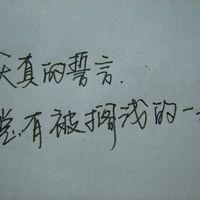 天真的誓言.
总有被搁浅的一